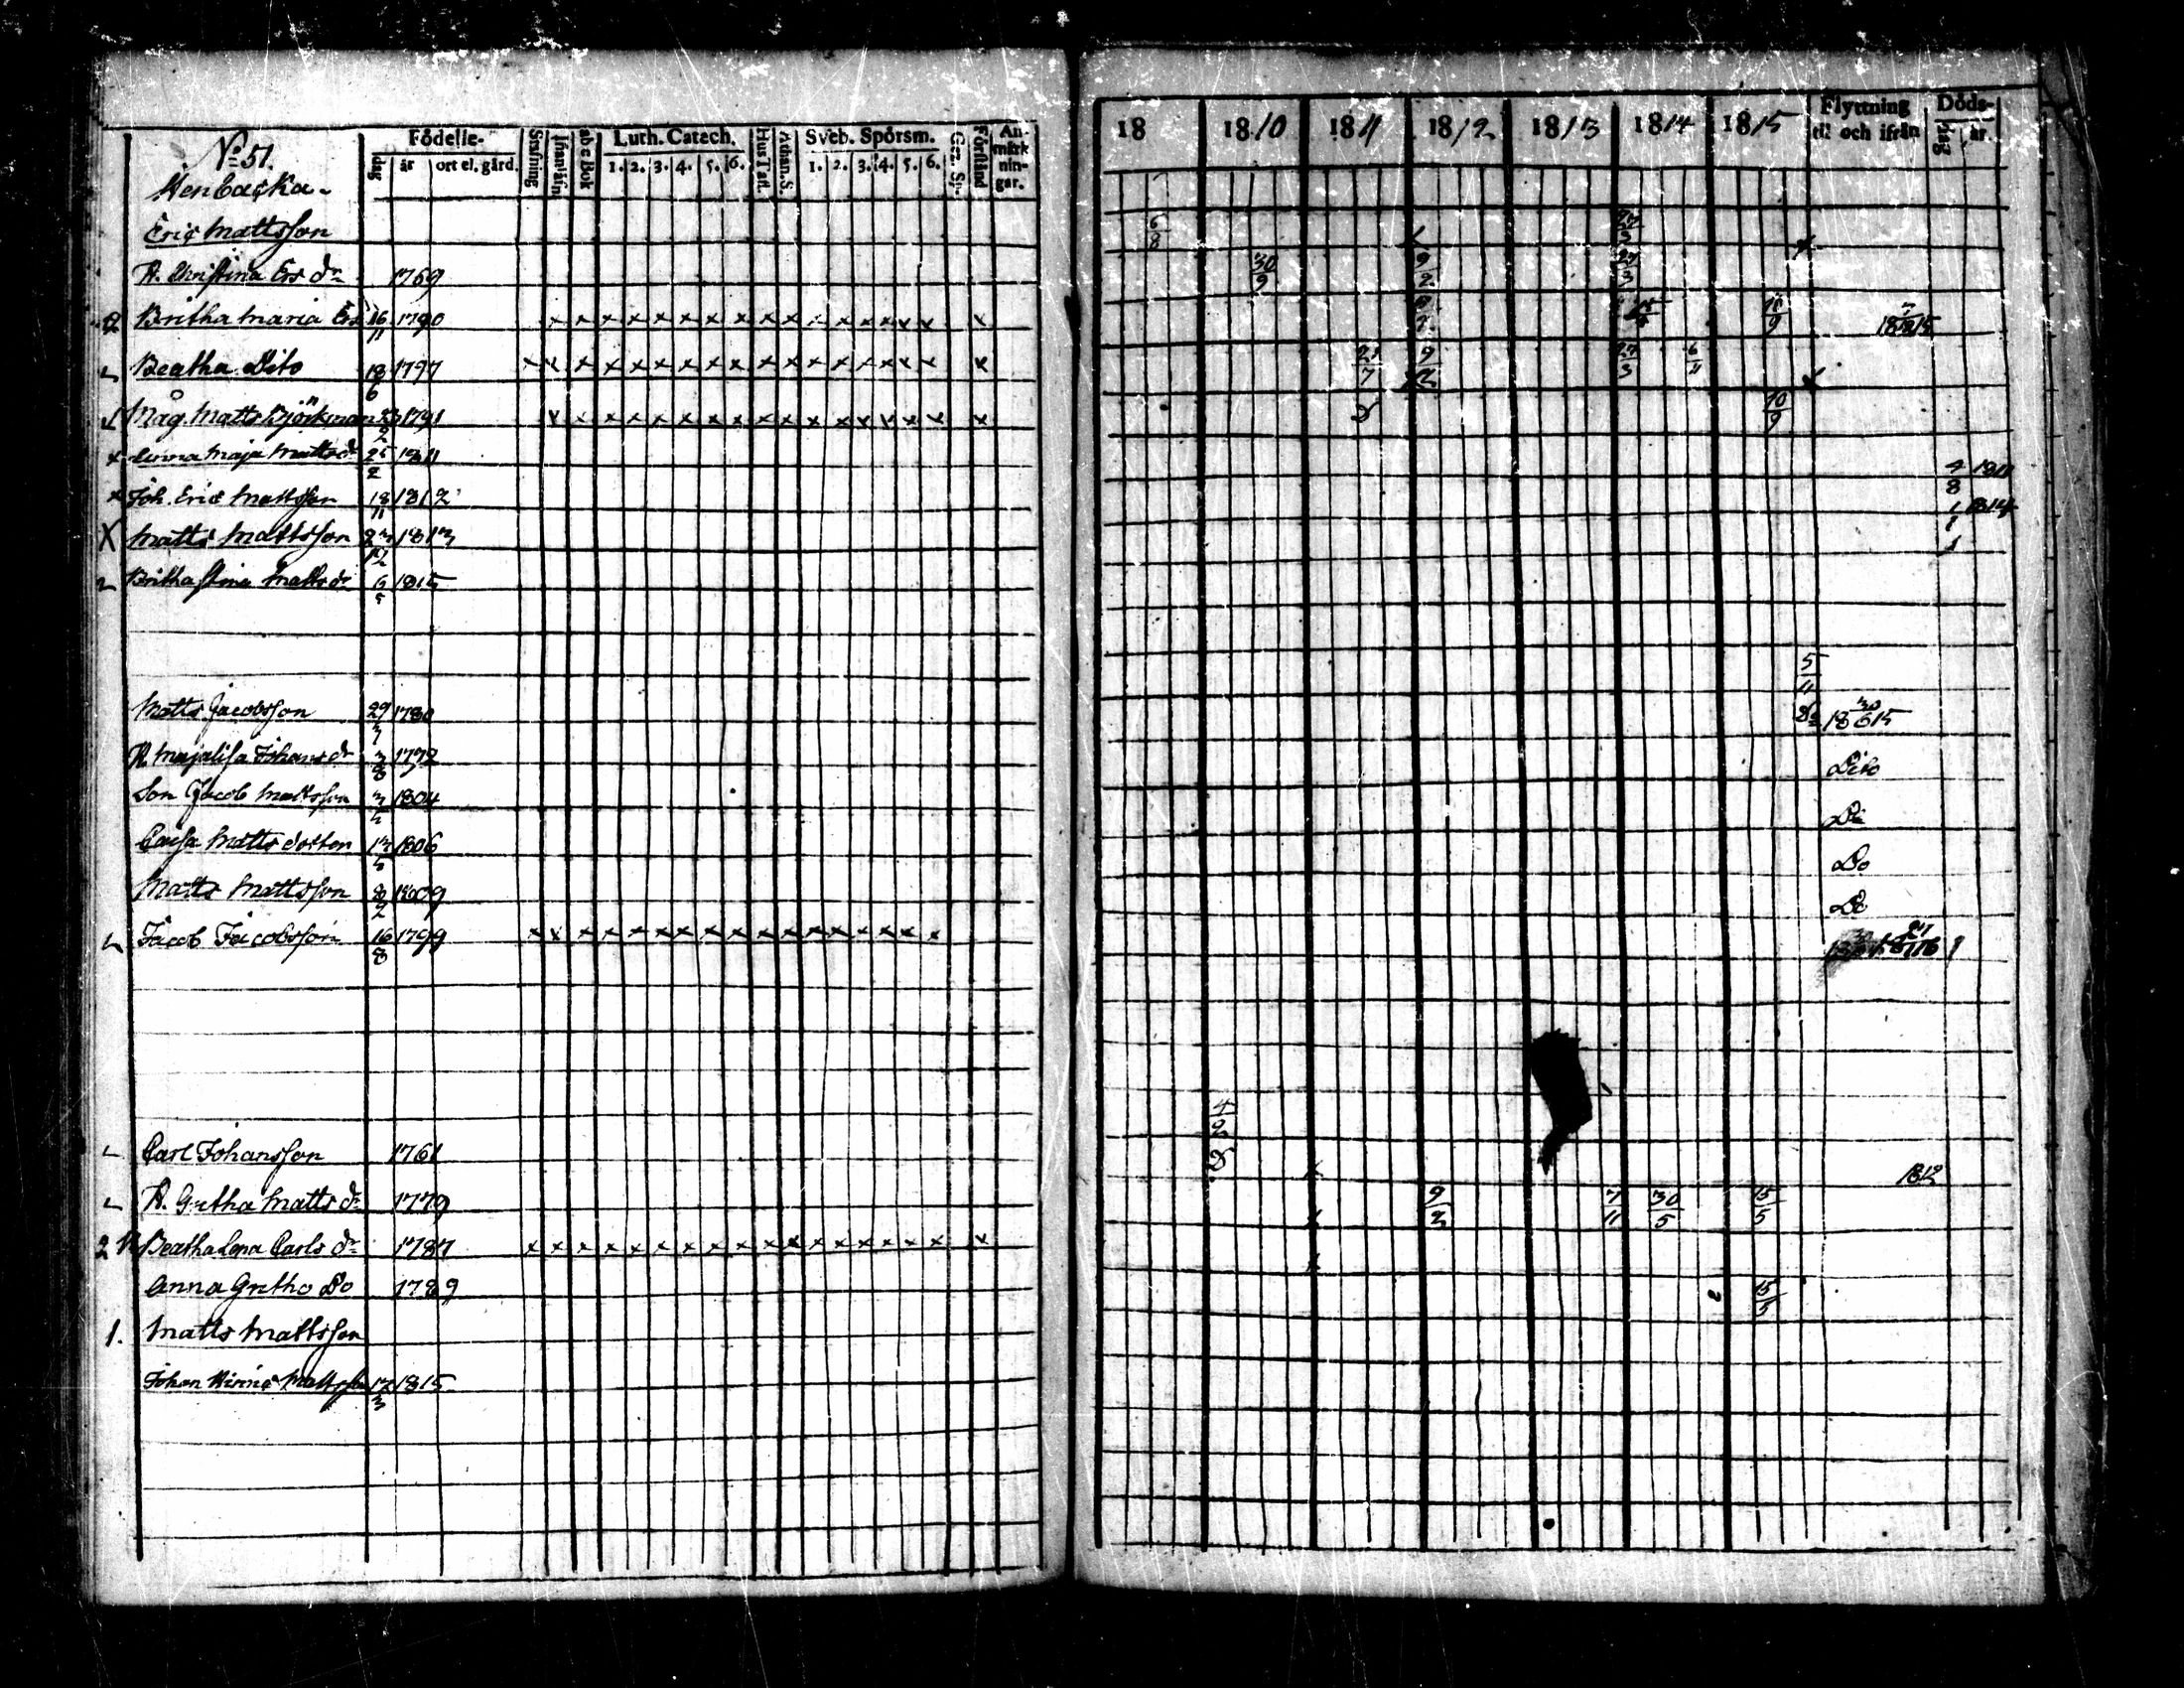 No 51.
Födelse-
dag år ort el. gård.
Stafning
abc Bok
Luth. Catech.
1. 2. 3. 4. 5. 6.
Hus Tafl.
Athan. S.
Sveb. Spörsm.
1. 2. 3. 4. 5. 6.
Förstånd
An-
märk
nin-
gar.
Eric Mattsson
H. Christina Ers dr 1769
2 Britha Maria Ers 16/11 1790
Beatha Dito 18/6 1797
Måg. Matts Björkman 23/2 1791
x Anna Maja Matts dr 25/2 1811
x Joh. Eric Mattsson 18/11 1812
X Matts Mattsson 23/12 1813
2 Britha Stina Matts dr 6/5 1815
Matts Jacobsson 29/7 1780
H. Majalisa Johans dr 3/8 1772
Son Jacob Mattsson 1804
Cajsa Matts dotter 1806
Matts Mattsson 8/2 1809
Jacob Jacobsson 16/8 1799
Carl Johansson 1761
H. Gretha Matts dr 1779
2 Beatha Lena Carls dr 1787
Anna Gretha Do 1789
1. Matts Mattsson
Johan Mattsson 1815
18 1810 1811 1812 1813 1814 1815
Flyttning
til och ifrån
Döds-
dag år.
6/8 27/3
30/9 9/2 27/3
10/9 1815
21/7 9/2 27/3 6/11
10/9
4/8 1811
1/1 1814
5/11
30
18 6 15
Dito
Do
Do
Do
4/2
1812
9/2 7/11 30/5 15/5
15/5